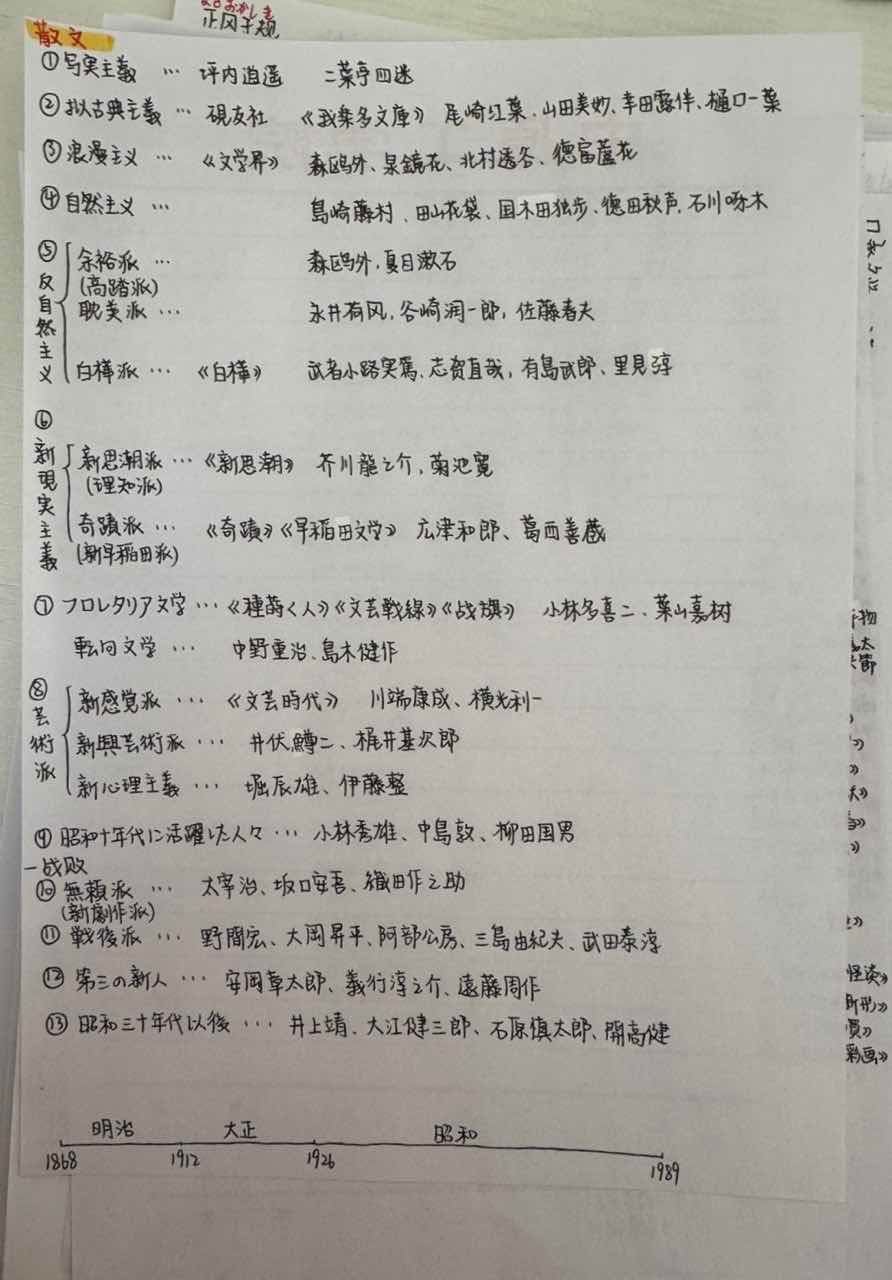 まさおかしき
正冈子规
散文
①写実主義 … 坪内逍遥 二葉亭四迷
②拟古典主義 … 硯友社 《我楽多文庫》 尾崎红葉、山田美妙、幸田露伴、樋口一葉
③浪漫主义 … 《文学界》 森鸥外、泉鏡花、北村透谷、徳富蘆花
④自然主义 … 島崎藤村、田山花袋、国木田独步、徳田秋声、石川啄木
⑤反自然主义
余裕派 … 森鸥外、夏目漱石
(高踏派)
耽美派 … 永井有风，谷崎润一郎，佐藤春夫
白樺派 … 《白樺》 武者小路実篤、志贺直哉，有島武郎、里見淳
⑥新現実主義
新思潮派 … 《新思潮》 芥川龍之介，菊池寛
(理知派)
奇蹟派 … 《奇蹟》《早稲田文学》 広津和郎、葛西善蔵
(新早稲田派)
⑦フロレタリア文学 … 《種蒔く人》《文芸戦線》《战旗》 小林多喜二、葉山嘉树
転向文学 … 中野重治、島木健作
⑧芸術派
新感覚派 … 《文芸時代》 川端康成、横光利一
新興芸術派 … 井伏鱒二、梶井基次郎
新心理主義 … 堀辰雄、伊藤整
⑨昭和十年代に活躍した人々 … 小林秀雄、中島敦、柳田国男
一战败
⑩無頼派 … 太宰治、坂口安吾、織田作之助
(新劇作派)
⑪戦後派 … 野間宏、大岡昇平、阿部公房、三島由紀夫、武田泰淳
⑫第三の新人 … 安岡草太郎、義行淳之介、遠藤周作
⑬昭和三十年代以後 … 井上靖、大江健三郎、石原慎太郎、開高健
明治 大正 昭和
1868 1912 1926 1989
怪谈》
彩画》